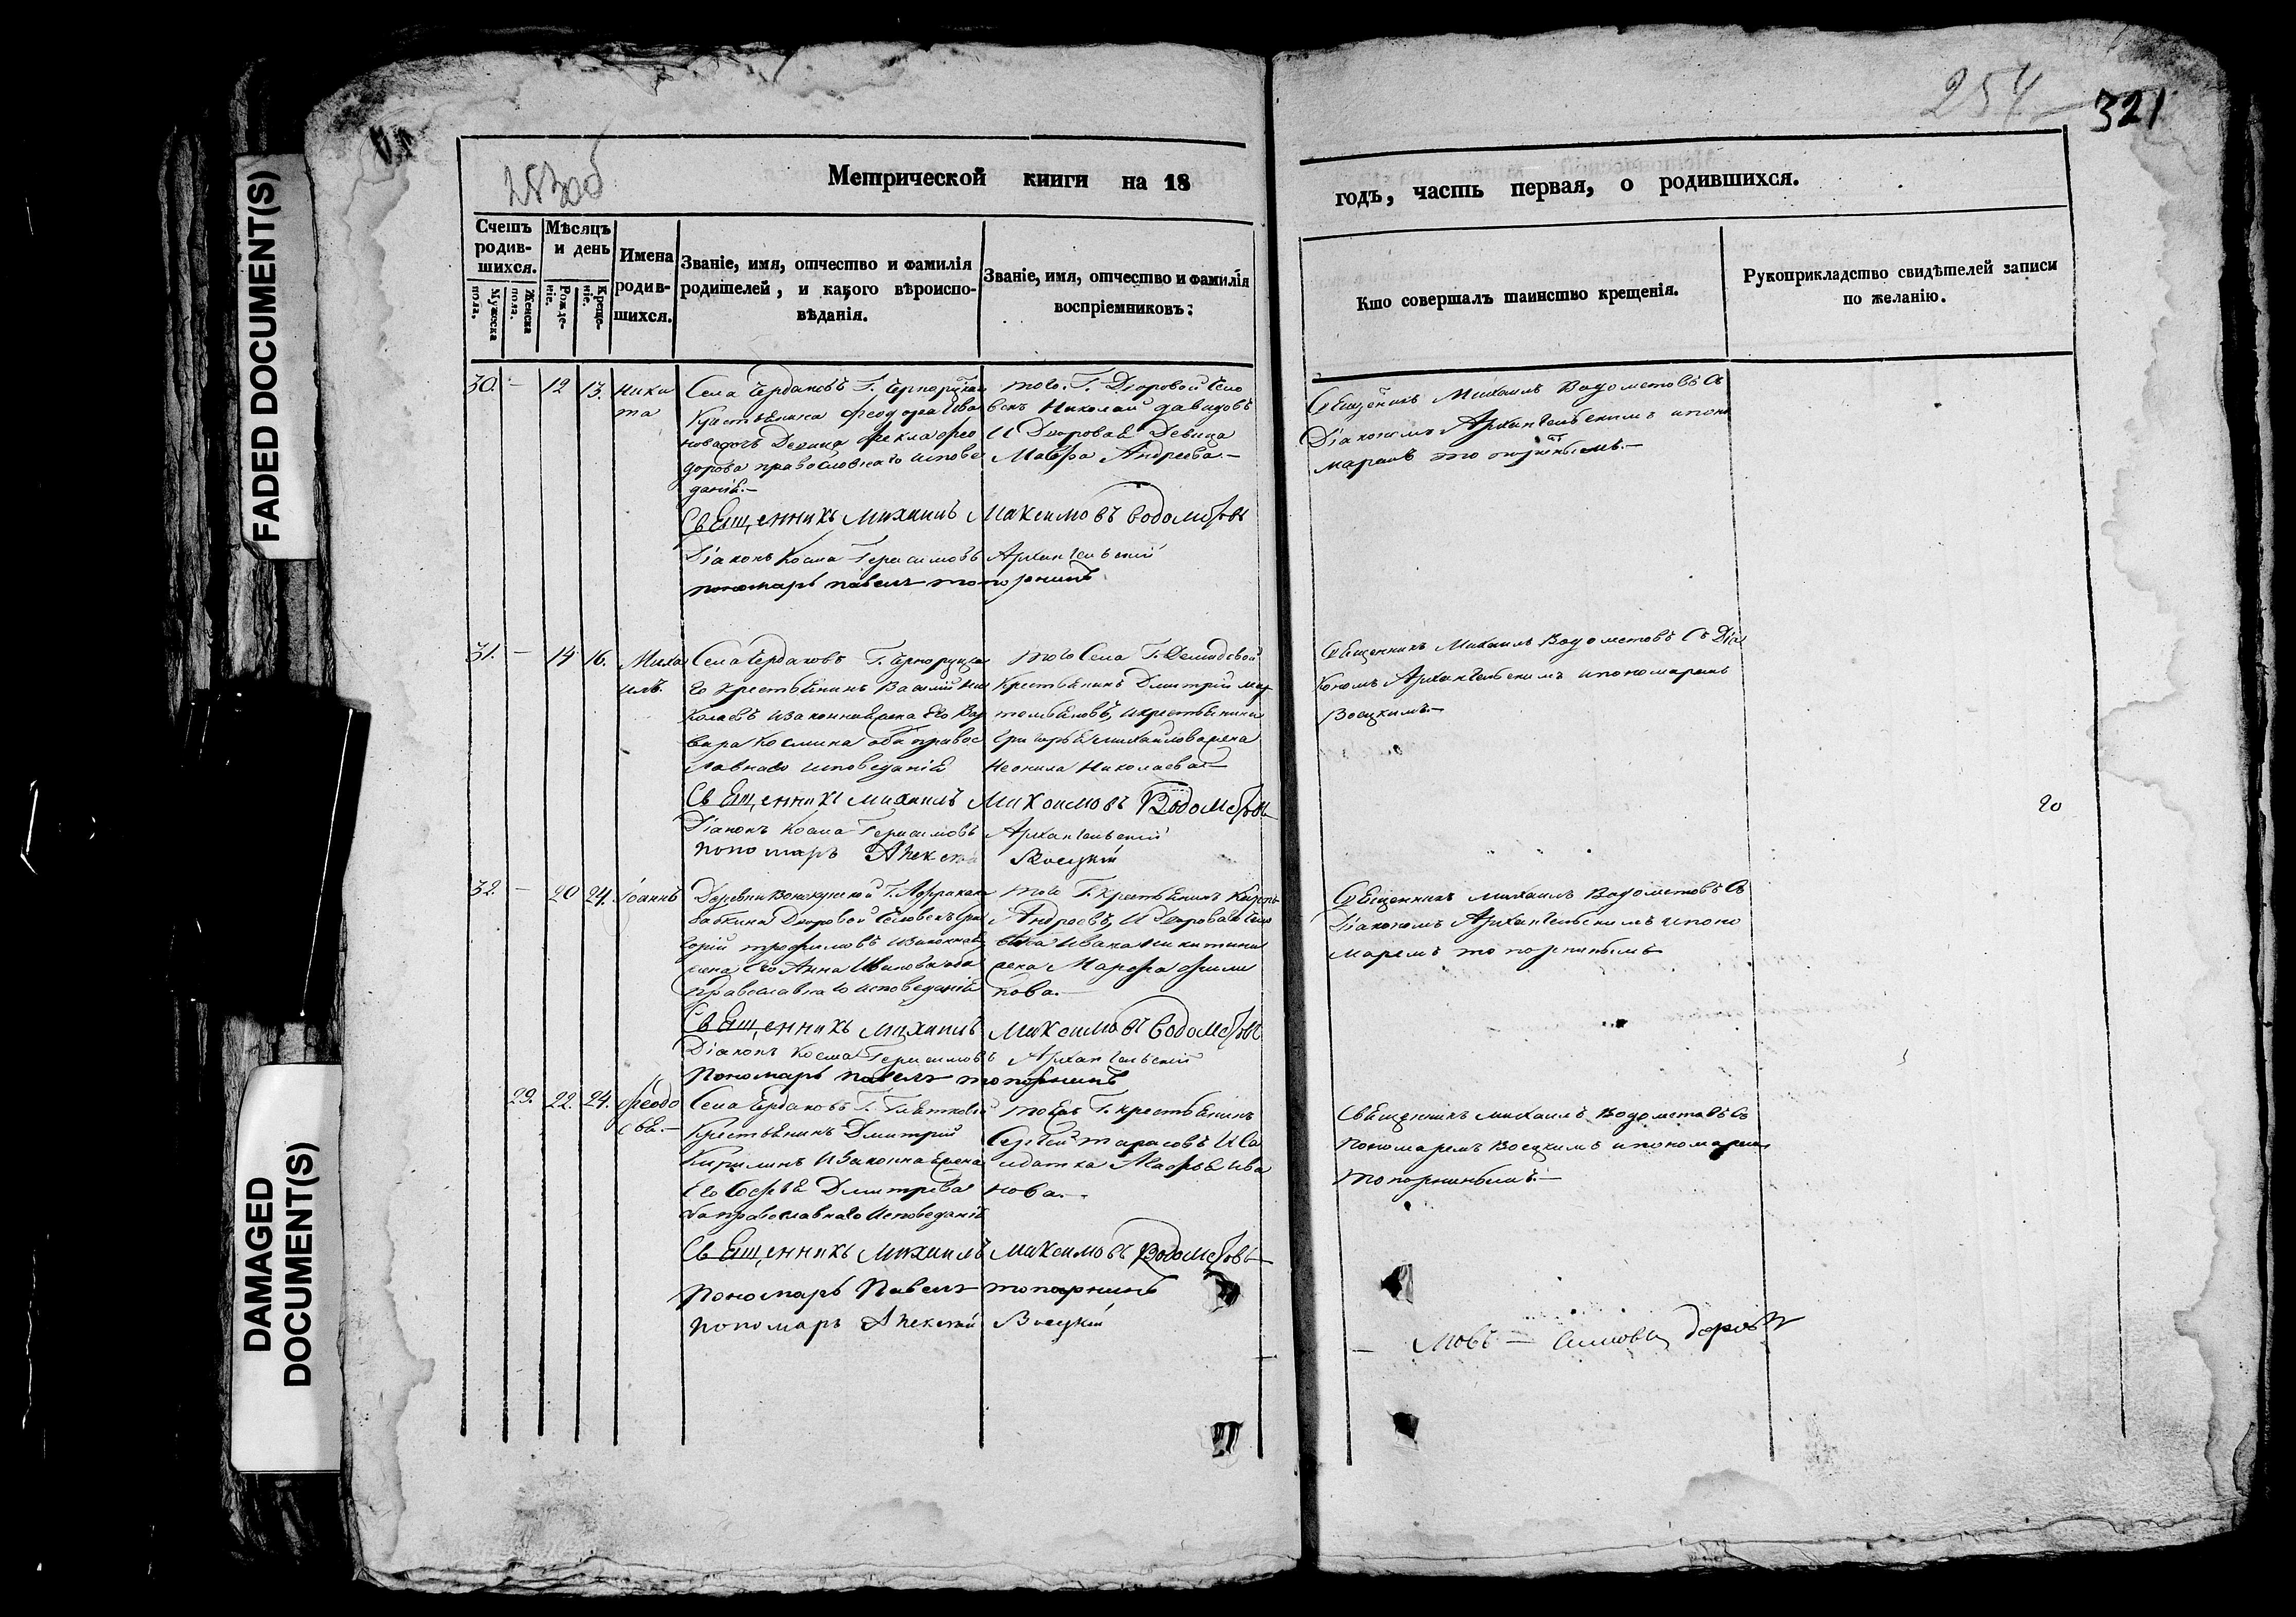 FADED DOCUMENT(S)
DAMAGED DOCUMENT(S)
254
321
283об
Метрической книги на 18
годъ, часть первая, о родившихся.
Счетъ родив-
шихся.
Мужеска пола.
Женска пола.
Мѣсяцъ и день
Рожде-
ніе.
Креще-
ніе.
Имена
родив-
шихся.
Званіе, имя, отчество и фамилія
родителей, и какого вѣроиспо-
вѣданія.
Званіе, имя, отчество и фамилія
воспріемниковъ:
Кто совершалъ таинство крещенія.
Рукоприкладство свидѣтелей записи
по желанію.
30. — 12 13. Ники
та
Села Чердаковъ Г.
Крестьянина Феодора Ива
нова дочь Девица Фекла Фео
дорова православнаго испове
данія.—
того. Г. Дворовой Чело
векъ Николай Давидовъ
И Дворовая Девица
Мавра Андреева.—
Священникъ Михаилъ Водометовъ Съ
Діакономъ Архангельскимъ и поно
маремъ
Священникъ Михаилъ Максимовъ Водометовъ
Діаконъ Косма Герасимовъ Архангельскій
пономарь павелъ топорнинъ
31. — 14 16. Миха
илъ.
Села Чердаковъ Г. Чернорускa
го крестьянинъ Василий Ни
колаевъ и законная жена Его Вар
вара Космина оба правос
лавнаго исповеданія
того Села Г. Демидовой
Крестьянинъ Дмитрий Мар
темьяновъ, и крестьянина
Григорья Михайлова жена
Неонила Николаева.—
Священникъ Михаилъ Водометовъ Съ Діа
кономъ Архангельскимъ и пономаремъ
Воецкимъ.—
Священникъ михаилъ Максимовъ Водометовъ
Діаконъ Косма Герасимовъ Архангельский
пономарь Алексей Воецкий
20
32. — 20 24. Іоаннъ
Деревни Г.
Дворовой Человекъ Гри
горий трофимовъ и законная
жена Его Анна Иванова оба
Православнаго исповеданія
того Г. Крестьянинъ
Андреевъ, И Дворова Чело
века Ивана Никитина
жена Марфа Фили
пова.—
Священникъ Михаилъ Водометовъ Съ
Діакономъ Архангельскимъ и поно
маремъ топорнинымъ
Священникъ Михаилъ Максимовъ Водометовъ
Діаконъ Косма Герасимовъ Архангельский
Пономарь павелъ топорнинъ
29. 22. 24. Феодо
сья.—
Села Чердаковъ Г.
Крестьянинъ Дмитрий
Кирилинъ и Законная жена
Его Софья Дмитрева
оба православнаго Исповеданія
тоеже Г. крестьянинъ
Сергей тарасовъ И Со
лдатка Марфа Ива
нова.—
Священникъ михаилъ Водометовъ Съ
Пономаремъ Воецкимъ и пономаремъ
Топорнинымъ.—
Священникъ Михаилъ Максимовъ Водометовъ
Пономарь Павелъ топорнинъ
пономарь Алексей Воецкий